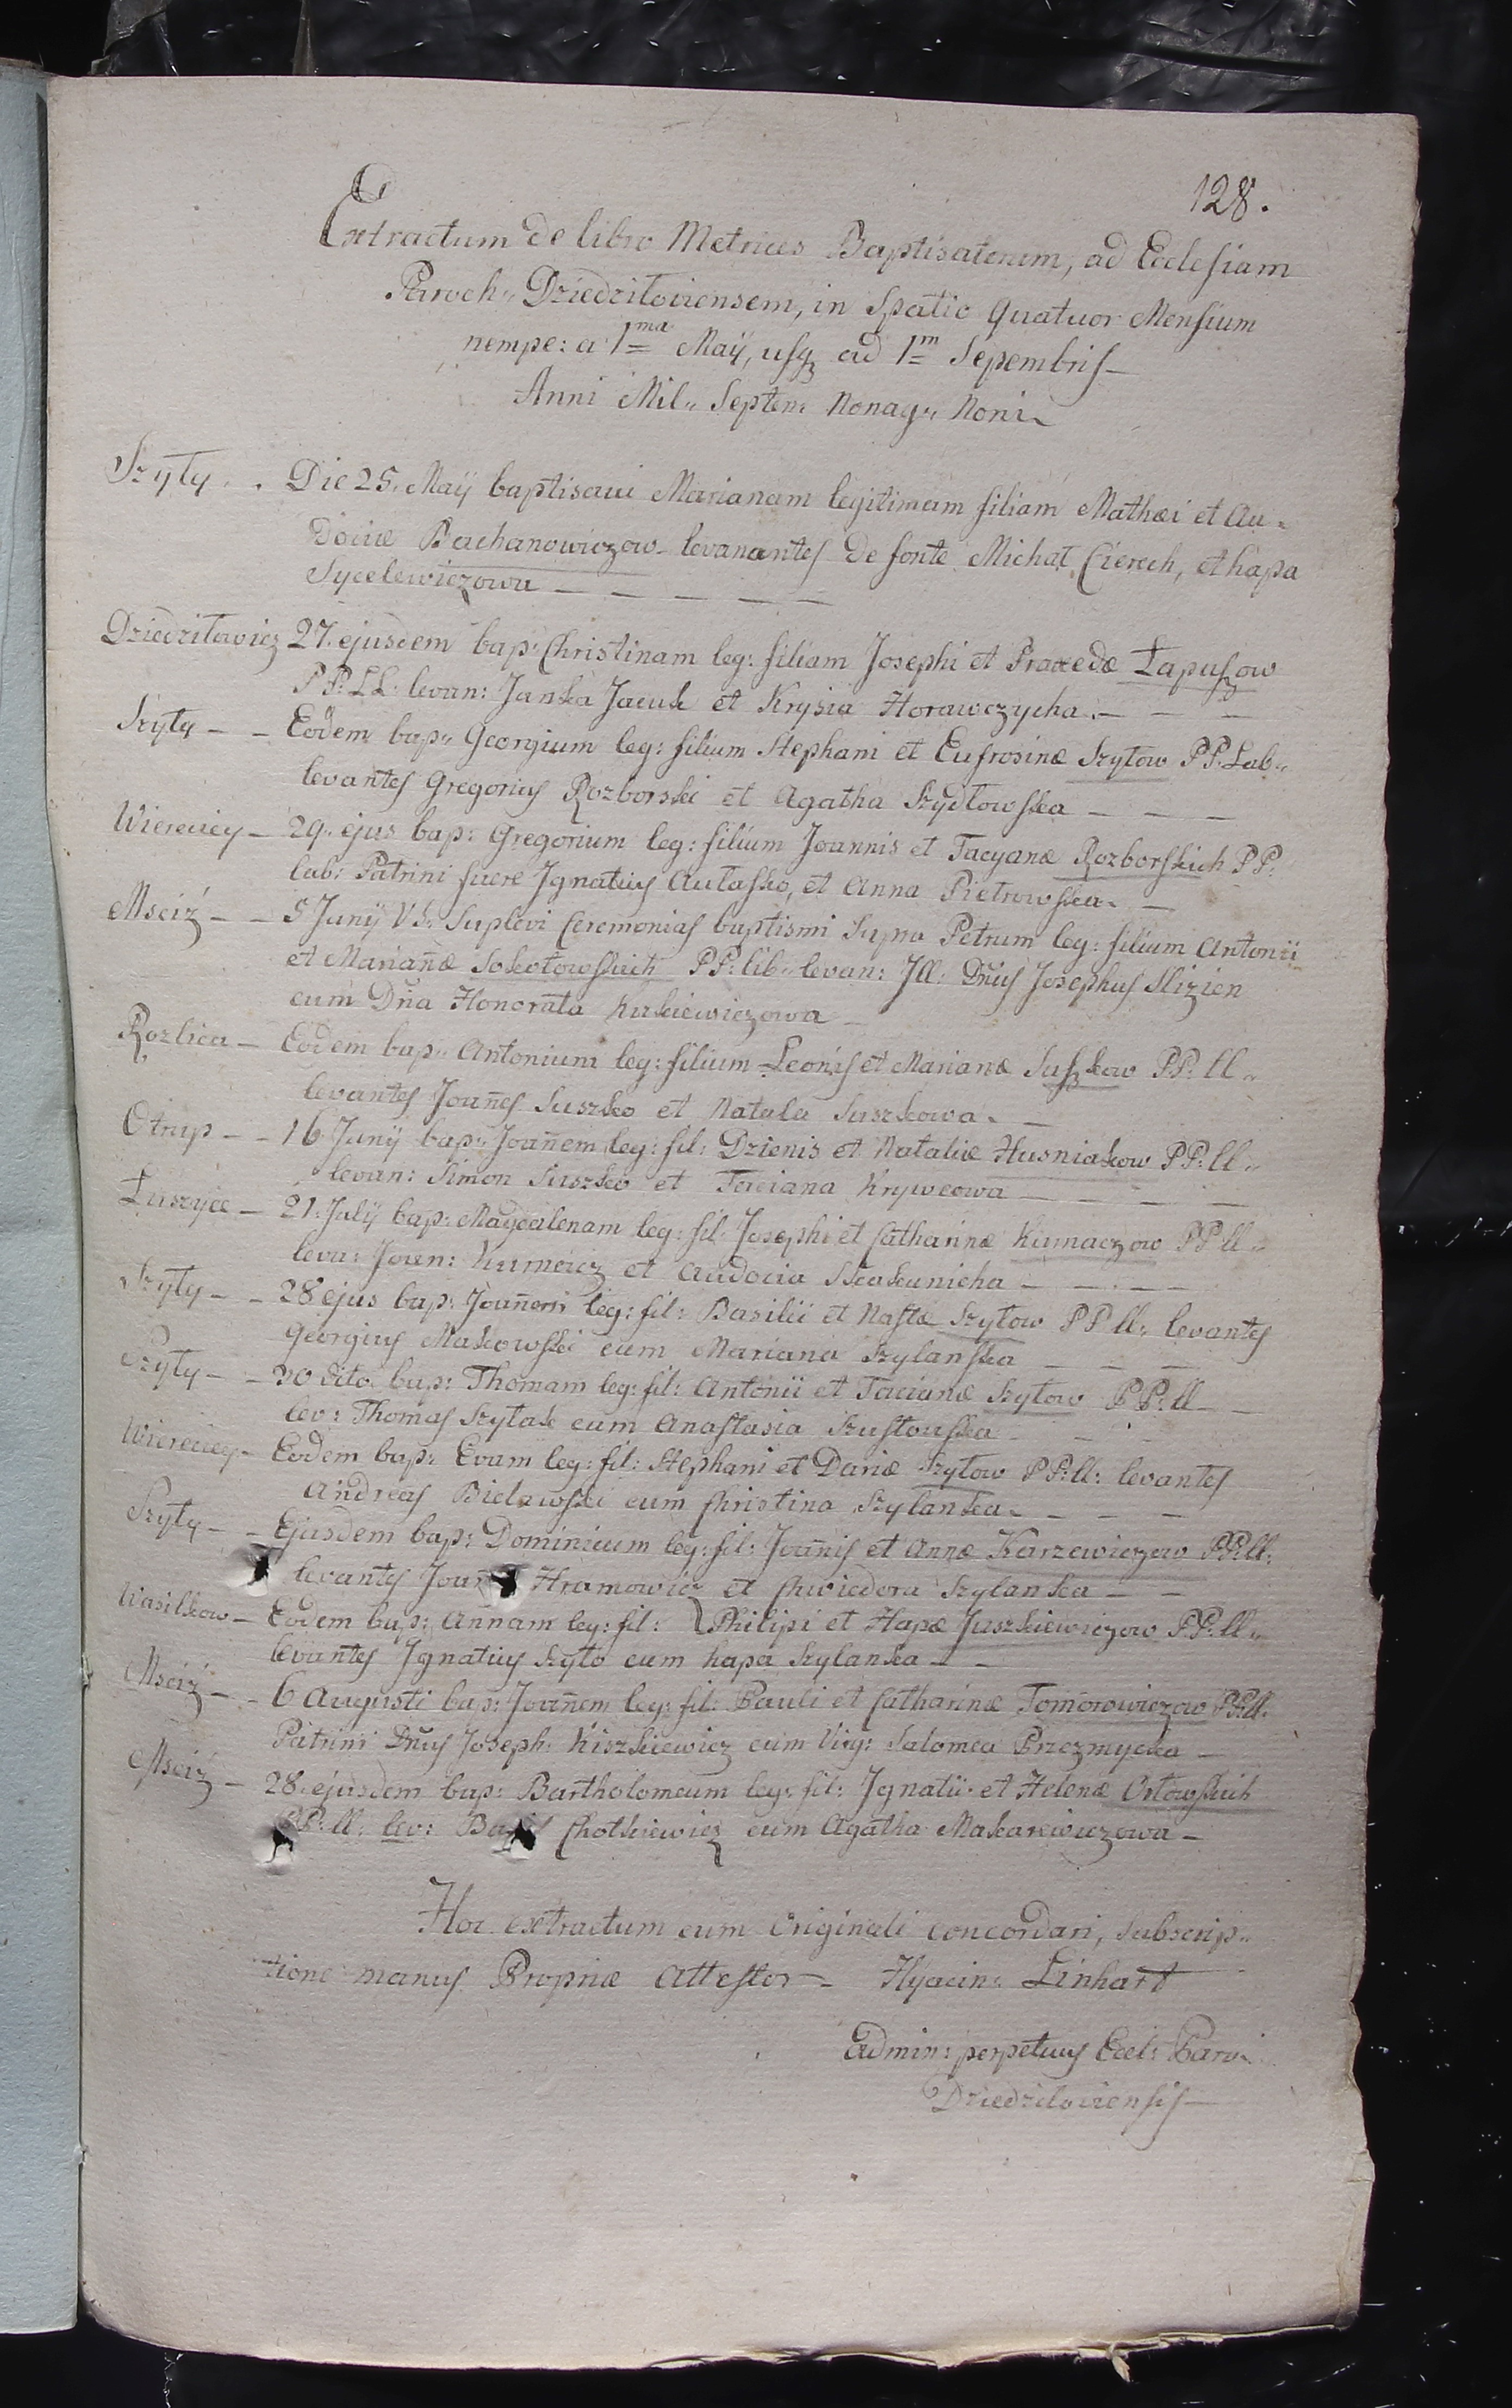 128.
Extractum de libro Metrices Baptisatorum, ad Ecclesiam
Paroch„ Dziedziłoviensem, in Spatio Quatuor Mensium
nempe: a 1ma Maÿ, usq ad 1m Sepembris
Anni Mil„ Septem: Nonag„ Noni
Szyły . . Die 25. Maÿ baptisavi Marianam legitimam filiam Mathæi et Au-
dociæ Bachanowiczow levanantes de fonte Michał Cierech, et hapa
Sycelewiczowa
Dziedziłowicz 27. ejusdem bap: Christinam leg: filiam Josephi et Praxedæ Łapuszow
PP: LL: levan: Janka Jacuk et Krysia Horawczycha
Szyły - - Eodem bap„ Georgium leg: filium Stephani et Eufrosinæ Szyłow PP: Lab„
levantes Gregorius Rozborski et Agatha Szydłowska
Wiereicy - 29. ejus bap: Gregorium leg: filium Joannis et Tacyanæ Rozborskich PP:
lab: Patrini fuere Ignatius Autasko, et Anna Pietrowska
Msciż - - 5 Junÿ VS. Suplevi Ceremonias baptismi Supra Petrum leg: filium Antonii
et Marianæ Sokołowskich PP: lib„ levan: Ill: Dnus Josephus Slizien
cum Dna Honorata Kuskiewiczowa
Rozlica - Eodem bap„ Antonium leg: filium Leonis et Marianæ Suszkow PP: ll„
levantes Joañes Suszko et Natala Suszkowa
Otrup - - 16 Junÿ bap„ Joañem leg: fil: Dzienis et Nataliæ Husniakow PP: ll„
levan: Simon Suszko et Taciana Krywcowa
Łuszyce - 21. Julÿ bap: Magdalenam leg: fil: Josephi et Catharinæ Kiumaczow PP ll„
leva: Joan: et Audocia Skakunicha
Szyły - - 28 ejus bap: Joañem leg: fil: Basilii et Nastæ Szyłow PP ll„ levantes
Georgius Makowski cum Mariana Szylanska
Szyły - - 30 dito bap: Thomam leg: fil: Antonii et Tacianæ Szyłow PP: ll
lev: Thomas Szylak cum Anastasia Szustowska
Wiereicy - Eodem bap: Evam leg: fil: Stephani et Dariæ Szyłow PP: ll: levantes
Andreas Bielawski cum Christina Szylanka
Szyły - - Ejusdem bap: Dominicum leg: fil: Joañis et Annæ Karzewiczow PP: ll:
levantes Hramowicz et Chwiedora Szylanka
Wasilkow - Eodem bap: Annam leg: fil: Philipi et Hapæ Juszkiewiczow PP: ll„
levantes Ignatius Szyło cum hapa Szylanka
Msciż - - 6 Augusti bap: Joañem leg: fil: Pauli et Catharinæ Tomorowiczow PP: ll.
Patrini Dnus Joseph: Kiszkiewicz cum Virg: Salomea Przezmycka
Msciż - 28. ejusdem bap: Bartholomeum leg: fil: Ignatii et Helenæ Orłowskich
PP: ll: lev: Chotkiewicz cum Agatha Makarewiczowa
Hoc extractum cum Originali concordari, subscrip„
tione manus Propriæ Attestor Hyacin: Linhart
Admin: perpetuus Eccl: Paro
Dziedziloviensis